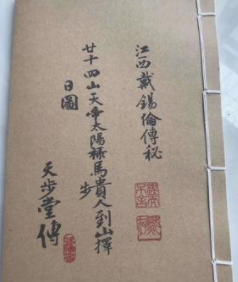 江西戴錫倫傳秘
廿十四山天帝太陽祿馬貴人到山擇
步
日圖
天步堂傳